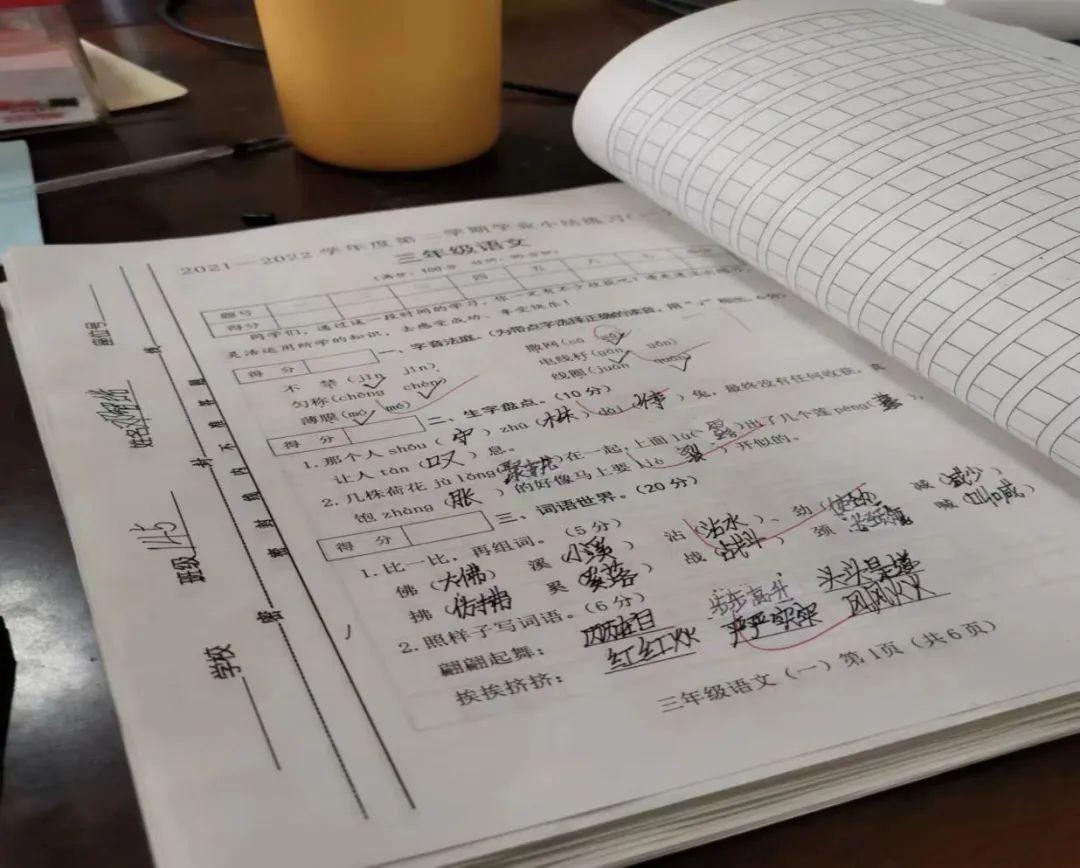 2021—2022学年度第二学期学业小结练习(一)
三年级语文
(满分：100分 时间：90分钟)
题号 一 二 三 四 五 六 七
得分
同学们，通过这一段时间的学习，你一定有不少收获吧！请
灵活运用所学的知识，去感受成功、享受快乐！
得分
一、字音法庭。(为带点字选择正确的读音，用“√”标出。6分)
不禁(jīn jìn) 撒网(sā
匀称(chēng chèn) 电线杆(gān gǎn)
薄膜(mó mó) 线圈(juān quān)
得分
二、生字盘点。(10分)
1.那个人shǒu(守)zhū(株)dài(待)兔，最终没有任何收获，真
让人tàn(叹)息。
2.几株荷花jù lǒng(聚拢)在一起，上面lù(露)出了几个莲peng(蓬)，
饱zhàng(胀)的好像马上要liè(裂)开似的。
得分
三、词语世界。(20分)
1.比一比，再组词。(5分)
佛(大佛) 溪(小溪) 沾(沾水) 劲 减(减少)
拂(仿拂) 奚(奚落) 战(战斗) 颈 喊(叫喊)
2.照样子写词语。(6分)
翩翩起舞： 历历在目 步步高升 头头是道
挨挨挤挤： 红红火火 严严实实 风风火火
三年级语文(一)第1页(共6页)
座位号
姓名
班级
学校
密
封
线